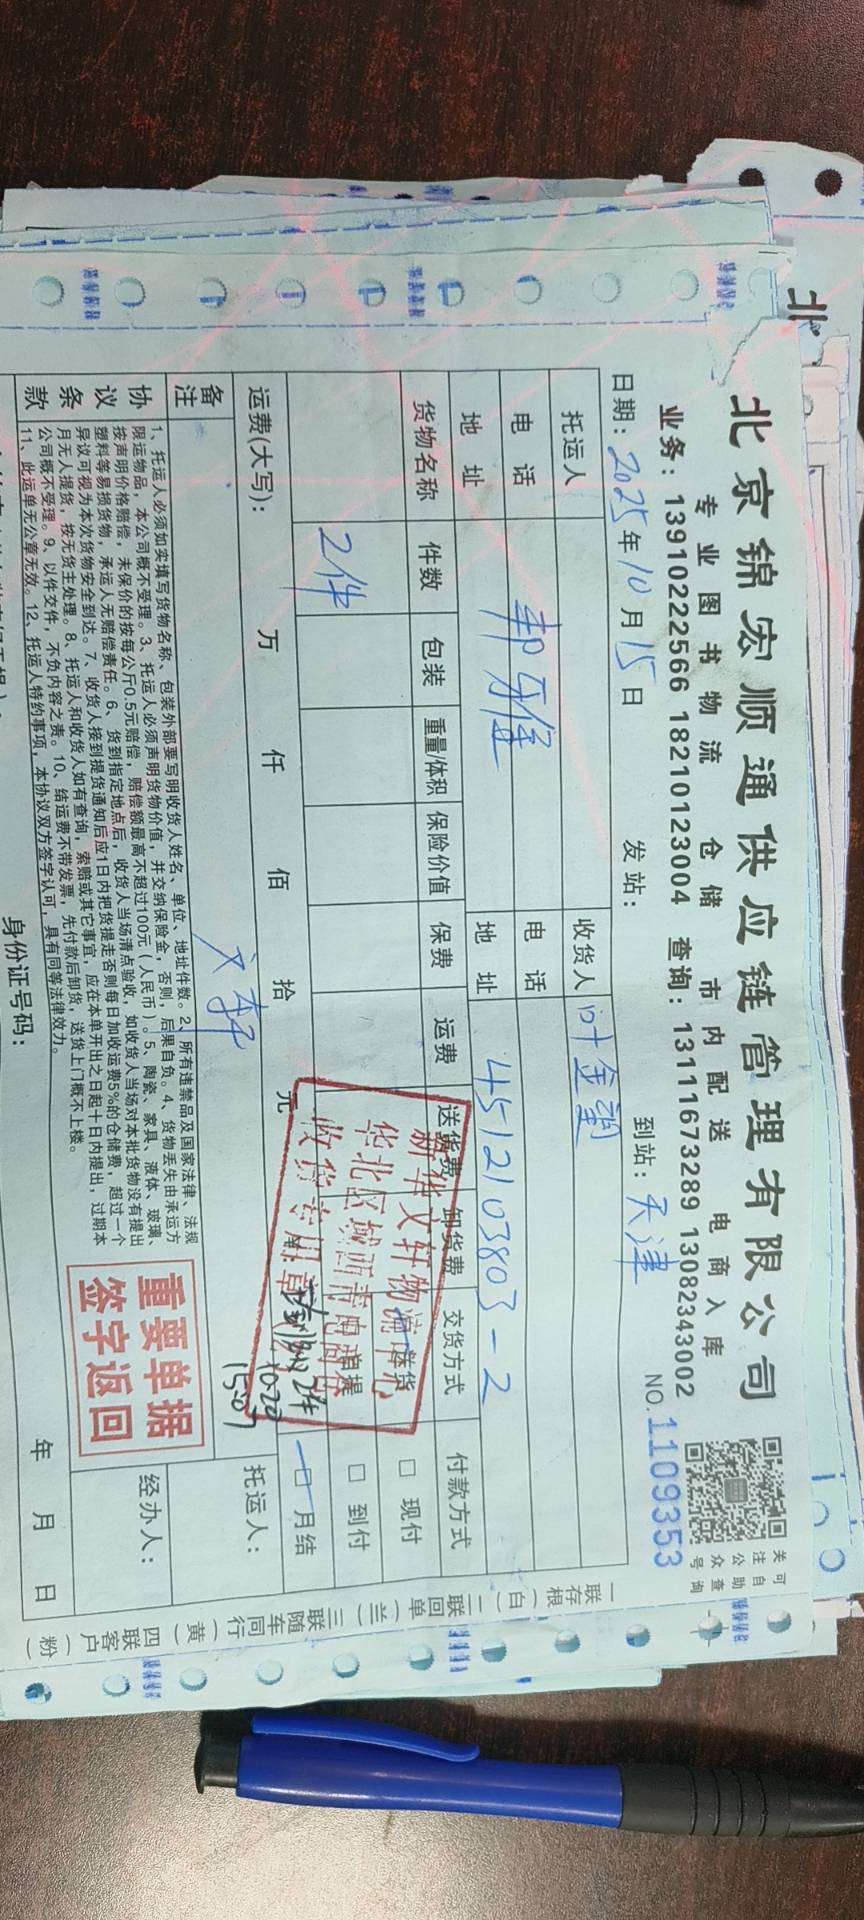 北京锦宏顺通供应链管理有限公司
专业图书物流 仓储 市内配送 电商入库
业务：13910222566 18210123004 查询：13111673289 13082343002
关注公众号
可自助查询
日期：2025年10月15日 发站： 到站：天津 NO.1109353
托运人 收货人 叶金望
电话 电话
地址 地址 4512103803-2
货物名称 件数 包装 重量/体积 保险价值 保费 运费 送货费 卸货费 交货方式 付款方式
2件 送货 □ 现付
自提 □ 到付
□ 月结
运费(大写)： 万 仟 佰 拾 元
备注 文轩
新华文轩物流中心
收货专用章
10.20
15:07
托运人：
经办人：
年 月 日
协议条款
1、托运人必须如实填写货物名称、包装外部要写明收货人姓名、单位、地址件数。2、所有违禁品及国家法律、法规
限运物品，本公司概不受理。3、托运人必须声明货物价值，并交纳保险金，否则，后果自负。4、货物丢失由承运方
按声明价格赔偿，未保价的按每公斤0.5元赔偿，赔偿额最高不超过100元（人民币）。5、陶瓷、家具、液体、玻璃、
塑料等易损货物，承运人无赔偿责任。6、货到指定地点后，收货人当场清点验收，如收货人当场对本批货物没有提出
异议可视为本次货物安全到达。7、收货人接到提货通知后应1日内把货提走否则每日加收运费5%的仓储费，超过一个
月无人提货，按无货主处理。8、托运人和收货人如有查询，索赔或其它事宜，应在本单开出之日起十日内提出，过期本
公司概不受理。9、以件交件，不负内容之责。10、结运费不带发票，先付款后卸货，送货上门概不上楼。
11、此运单无公章无效。12、托运人特约事项，本协议双方签字认可，具有同等法律效力。
重要单据
签字返回
身份证号码：
一联存根(白) 二联回单(兰) 三联随车同行(黄) 四联客户(粉)
北